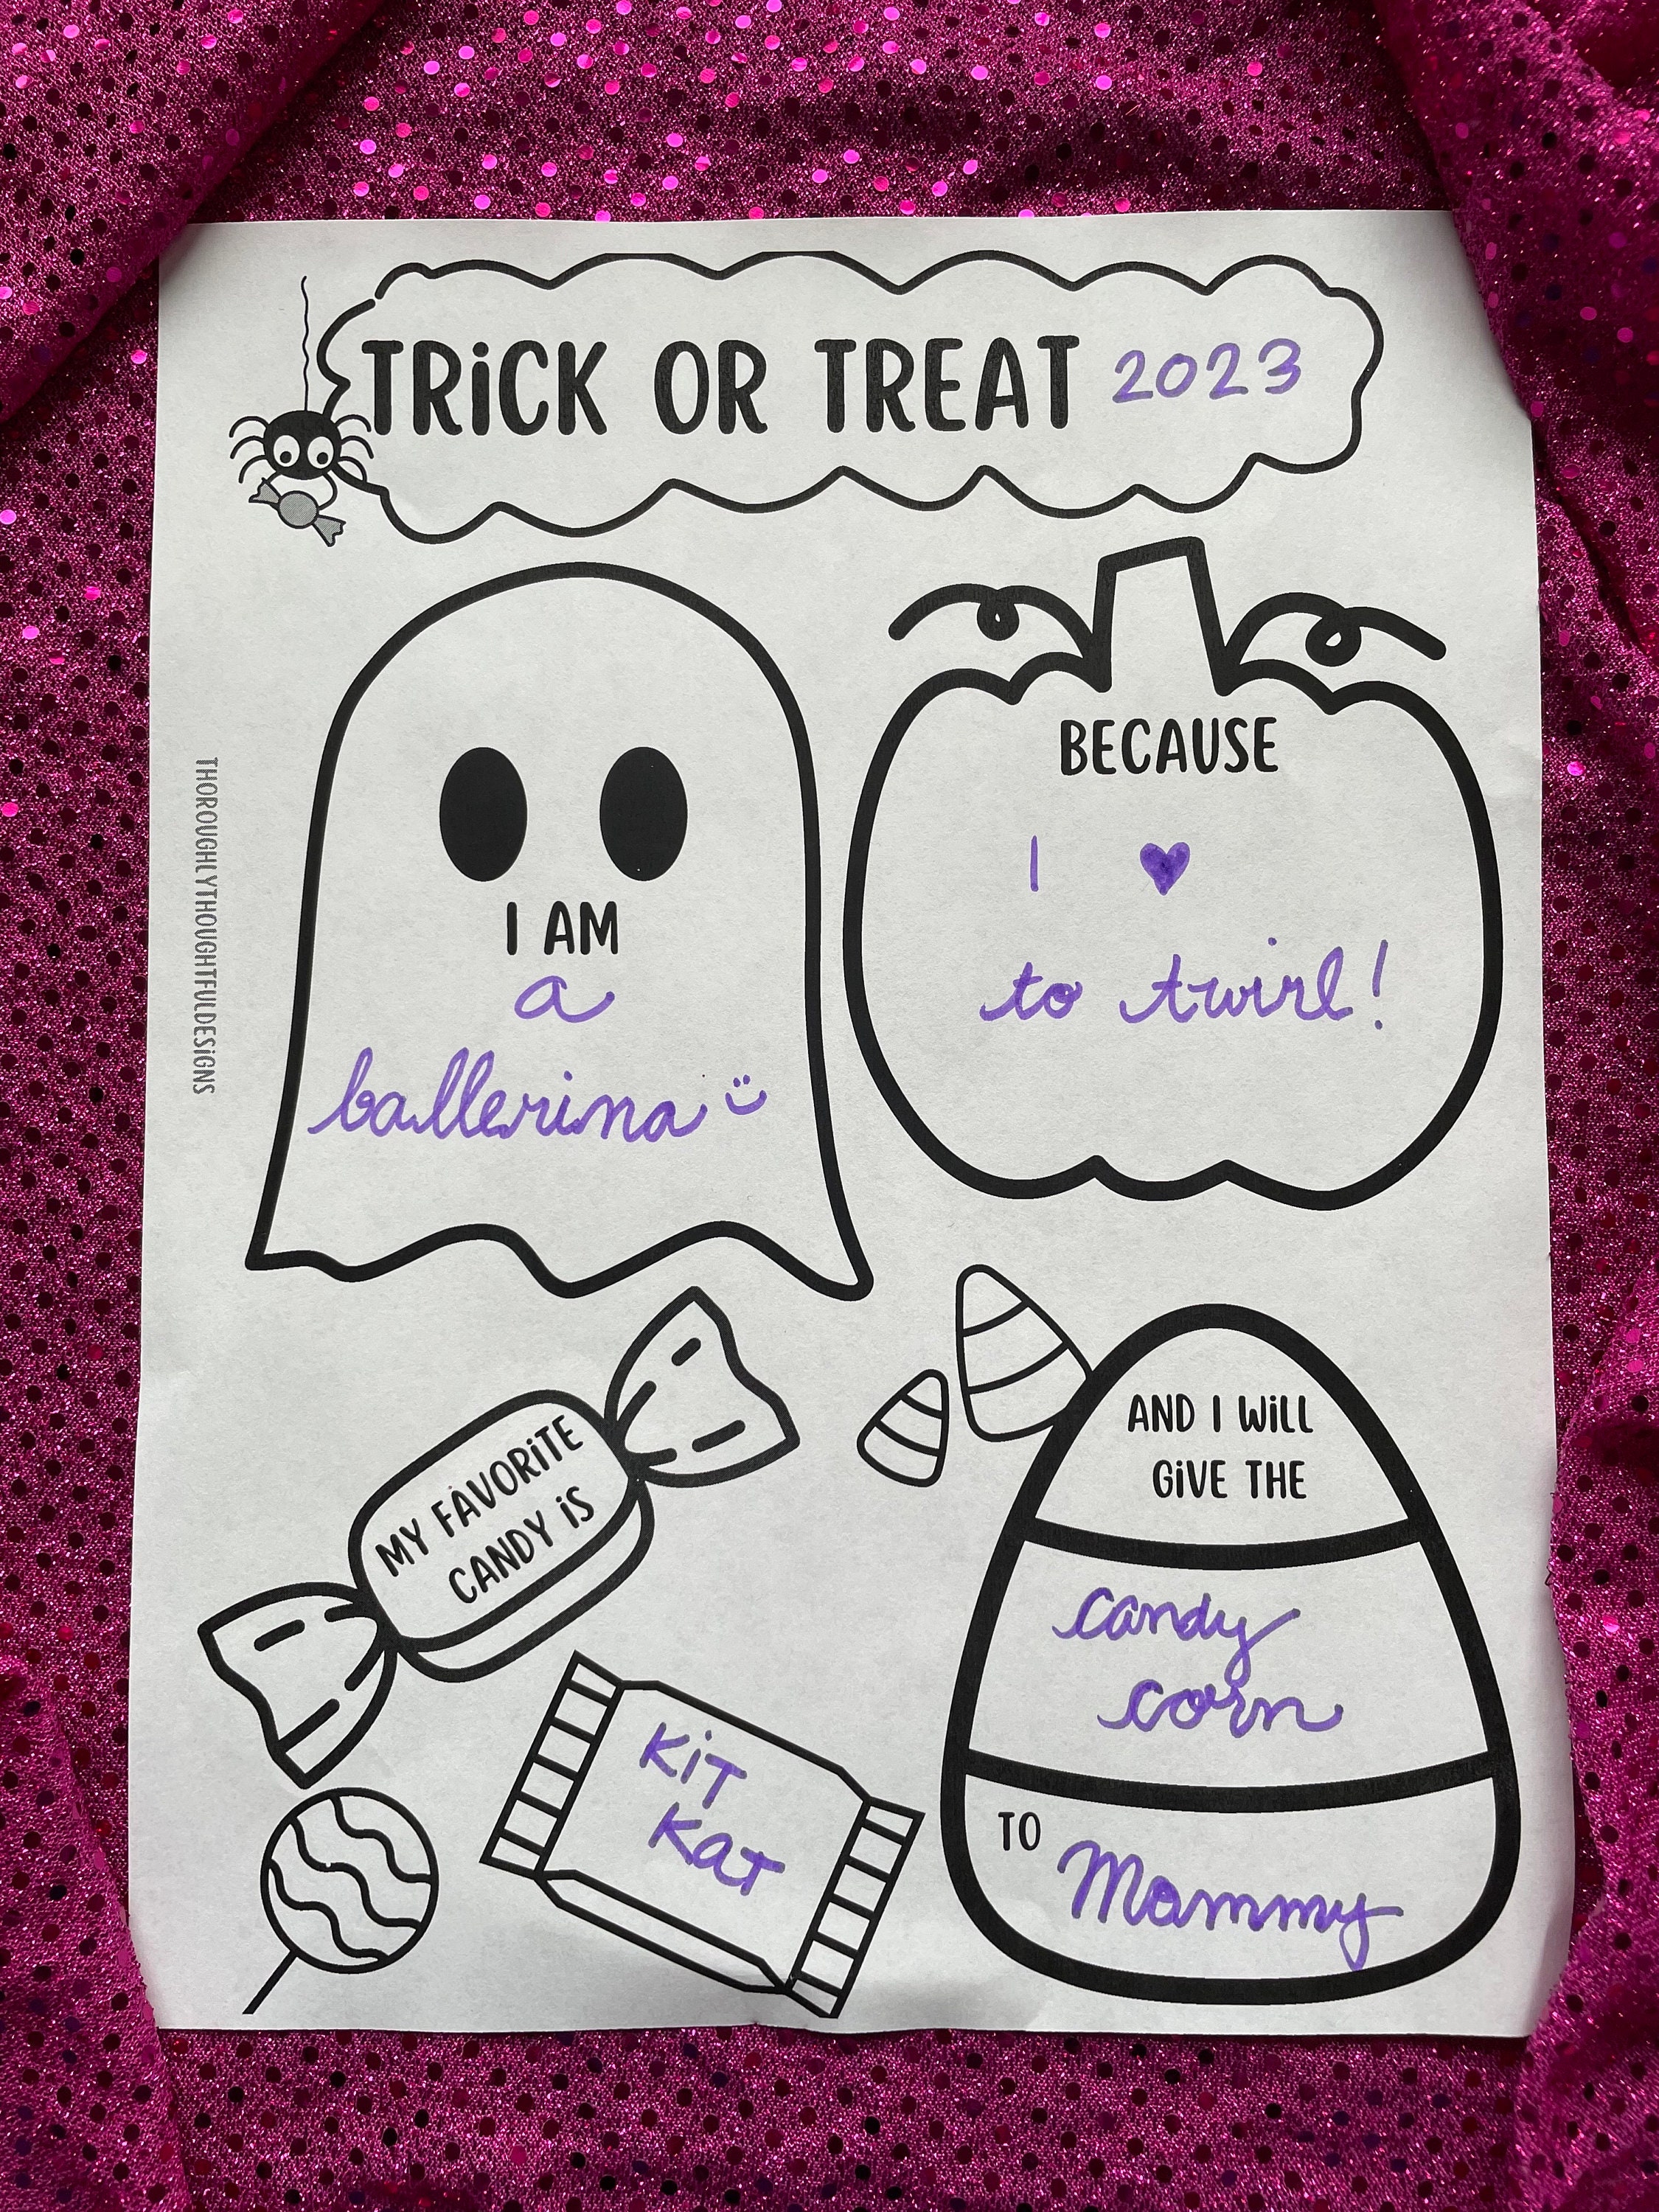 TRiCK OR TREAT 2023
I AM
a
ballerina
BECAUSE
I ♥
to twirl!
MY FAVORiTE
CANDY iS
KiT
KaT
AND I WiLL
GiVE THE
candy
corn
TO Mommy
THOROUGHLYTHOUGHTFULDESiGNS